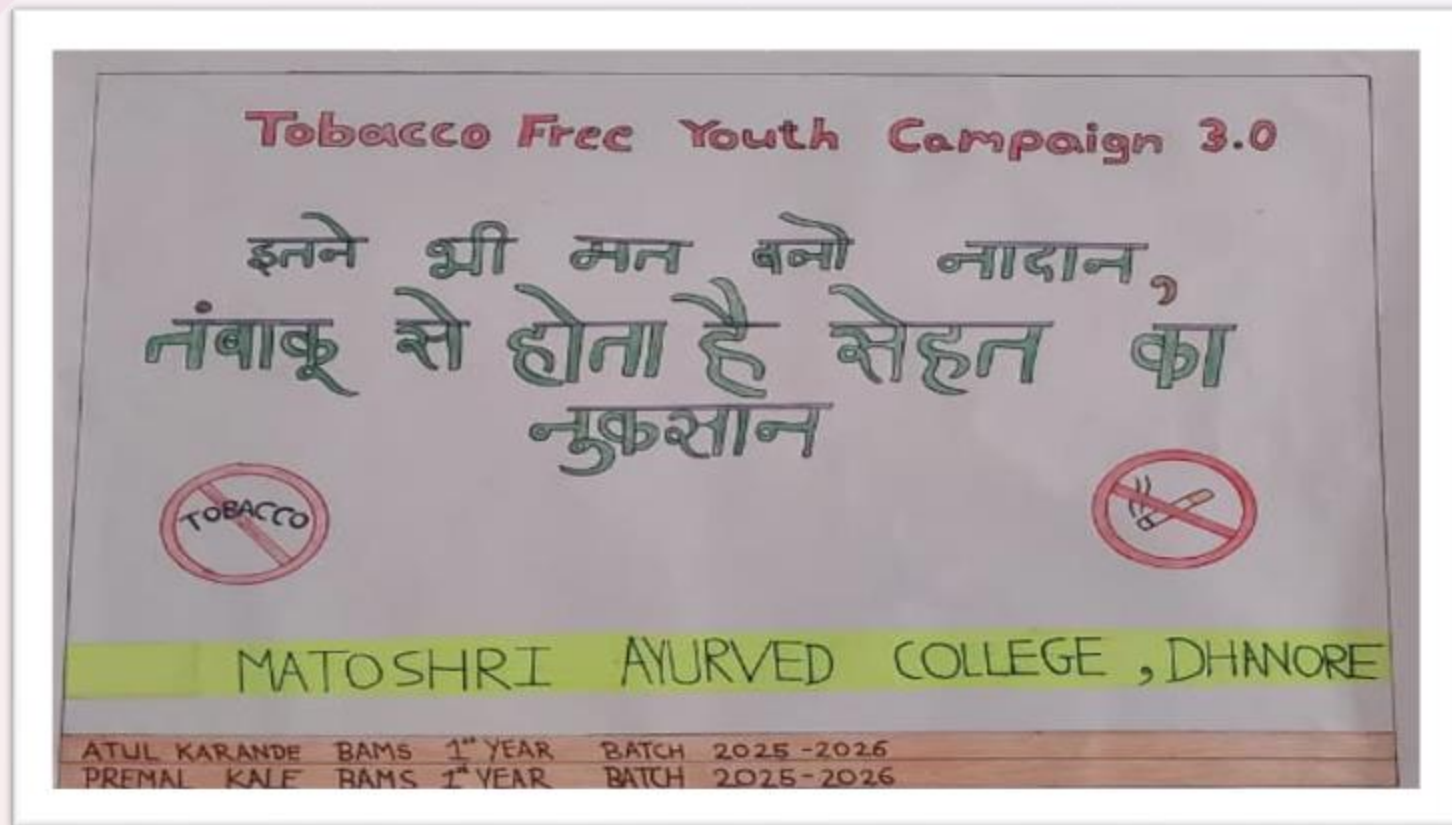 Tobacco Free Youth Campaign 3.0
इतने भी मत बनो नादान,
तंबाकू से होता है सेहत का
नुकसान
TOBACCO
MATOSHRI AYURVED COLLEGE, DHANORE
ATUL KARANDE BAMS 1st YEAR BATCH 2025-2026
PREMAL KALE BAMS 1st YEAR BATCH 2025-2026